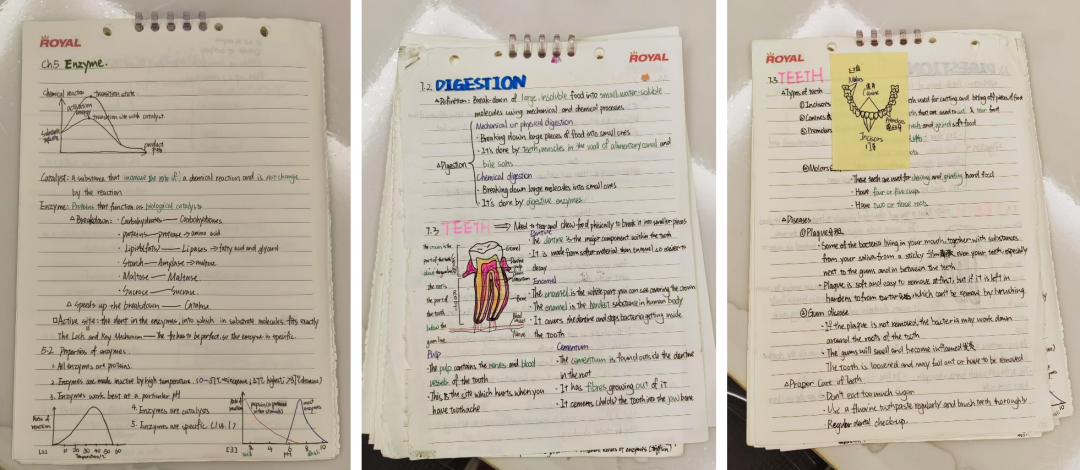 ROYAL
Ch5 Enzyme.
Chemical reaction
transition state
activation
transition state with catalyst.
product
Catalyst: A substance that increase the rate of a chemical reaction and is not change
by the reaction
Enzyme: Proteins that function as biological catalysts
△ Breakdown: · Carbohydrases — Carbohydrases
· proteins — protease → amino acid
· Lipids(fats) — Lipases → fatty acid and glycerol
· Starch — Amylase → maltose
· Maltose — Maltase
· Sucrose — Sucrase
△ Speeds up the breakdown — Catalase
Active site: the dent in the enzymes, into which in substrate molecules fits exactly
The Lock and Key Mechanism — the
to be perfect, so the enzyme is specific.
5.2 Properties of enzymes
1. All enzymes are proteins.
2. Enzymes are made inactive by high temperature.
3. Enzymes work best at a particular pH
4. Enzymes are catalysts
5. Enzymes are specific
Rate of
reaction
10 20 30 40 50 60
Temperature/°C
pH
ROYAL
7.2 DIGESTION
△Definition: Break-down of large, insoluble food into small, water-soluble
molecules using mechanical and chemical processes
Mechanical or physical digestion
· Breaking down large pieces of food into small ones
· It's done by teeth, muscles in the wall of alimentary canal and
bile salts
△Digestion
Chemical digestion
· Breaking down large molecules into small ones
· It's done by digestive enzymes
7.3 TEETH ⇒ Need to tear and chew food phisically to break it into smaller pieces
Dentine
· The dentine is the major component within the tooth
· It is made from softer material than enamel, so easier to
decay
Enamel
· The enamel is the white part you can see covering the crown
· The enamel is the hardest substance in human body
· It covers the dentine and stops bacteria getting inside
the tooth
The crown is the
part of the tooth
above the gum line
the root is
the part of
the tooth
below the
gum line
ROOT
Enamel
Dentine
Pulp
Gum
Bone
Nerve
Pulp
· The pulp contains the nerves and blood
vessels of the tooth
· This is the site which hurts when you
have toothache
Cementum
· The cementum is found outside the dentine
in the root
· It has fibres growing out of it
· It cements (holds) the tooth into the jaw bone
ROYAL
7.3 TEETH
△Types of teeth
① Incisors
② Canines
③ Premolars
④ Molars
Molars
Canine
Premolars
Incisors
门牙
used for cutting and biting off pieces of food
and grind soft food
· These teeth are used for chewing and grinding hard food
· Have four or five cusps
· Have two or three roots
△ Diseases
① Plaque
· Some of the bacteria living in your mouth, together with substances
from your saliva from a sticky film over your teeth, especially
next to the gums and in between the teeth
· Plaque is soft and easy to remove at first, but if it is left in
hardens to form tartar which can't be remove by brushing.
② Gum disease
· If the plaque is not removed, the bacteria may work down
around the roots of the tooth
· The gums will swell and become inflamed
The tooth is loosened and may fall out or have to be removed
△Proper Care of Teeth
· Don't eat too much sugar
· Use a fluorine toothpaste regularly and brush teeth thoroughly
· Regular dental check-up.